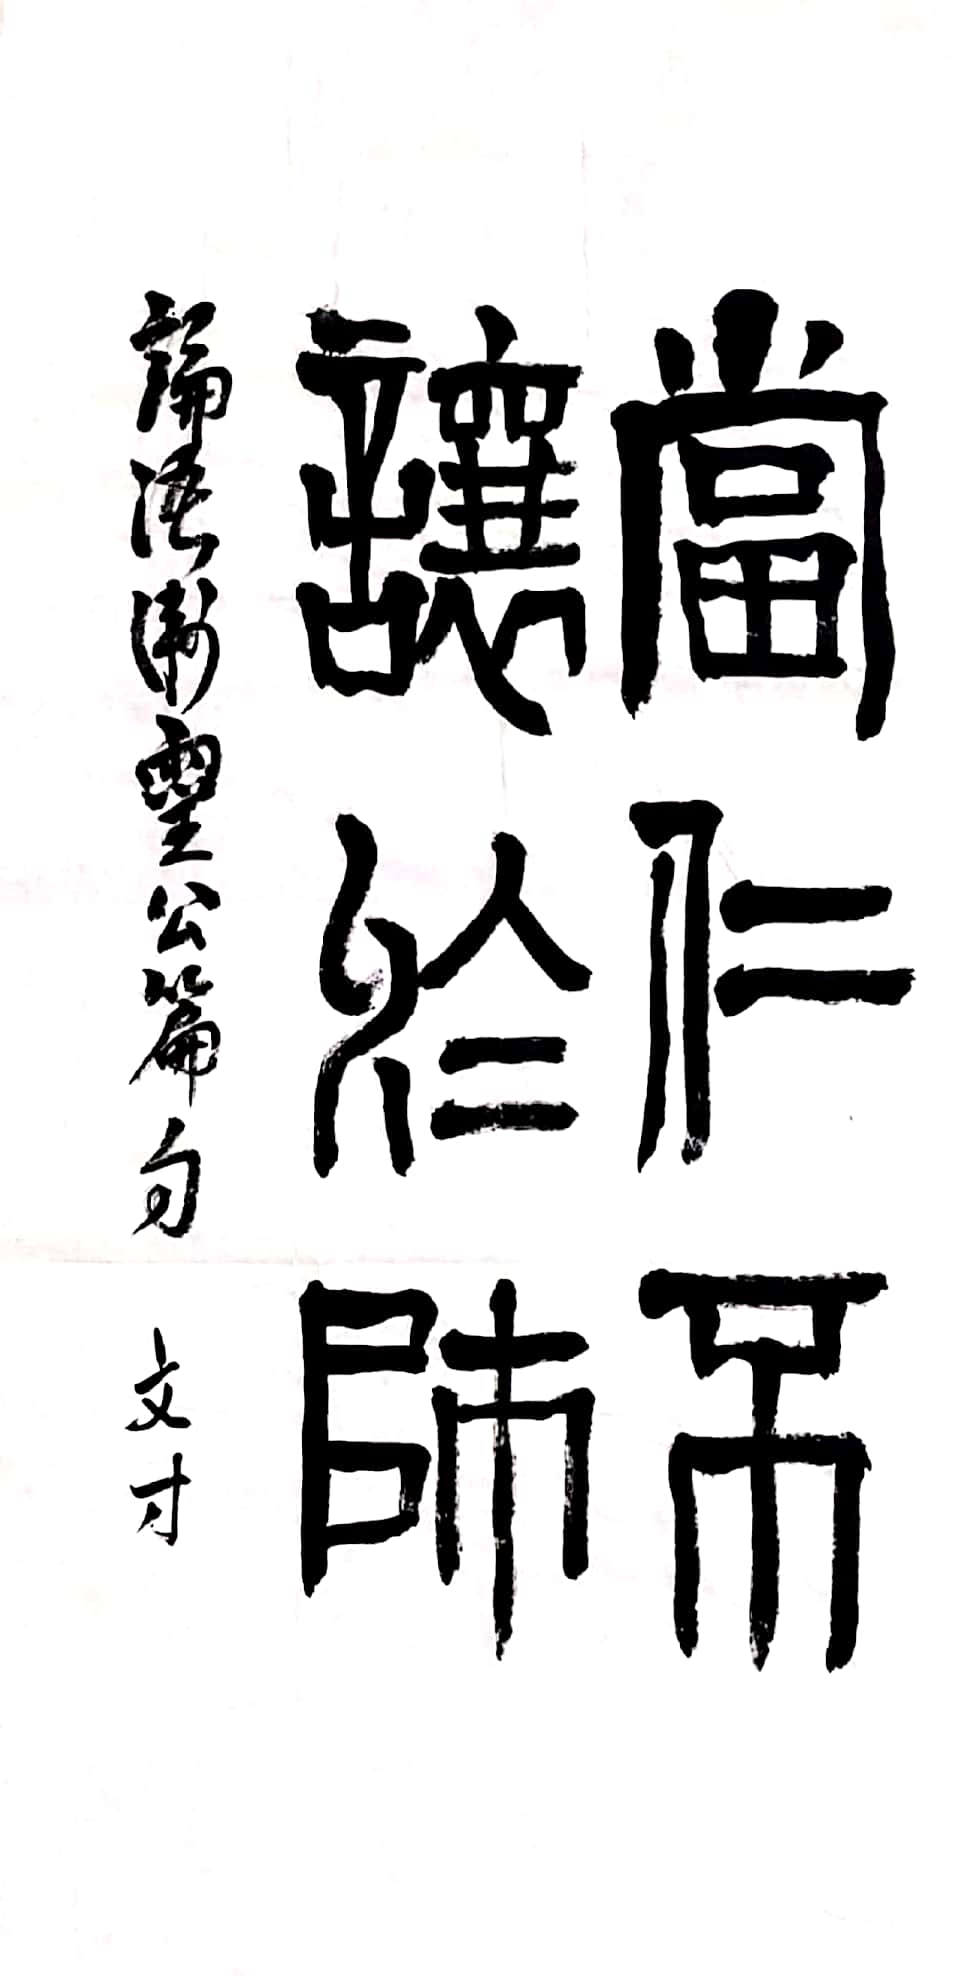 當仁不
讓於師
論語衛靈公篇句
文才